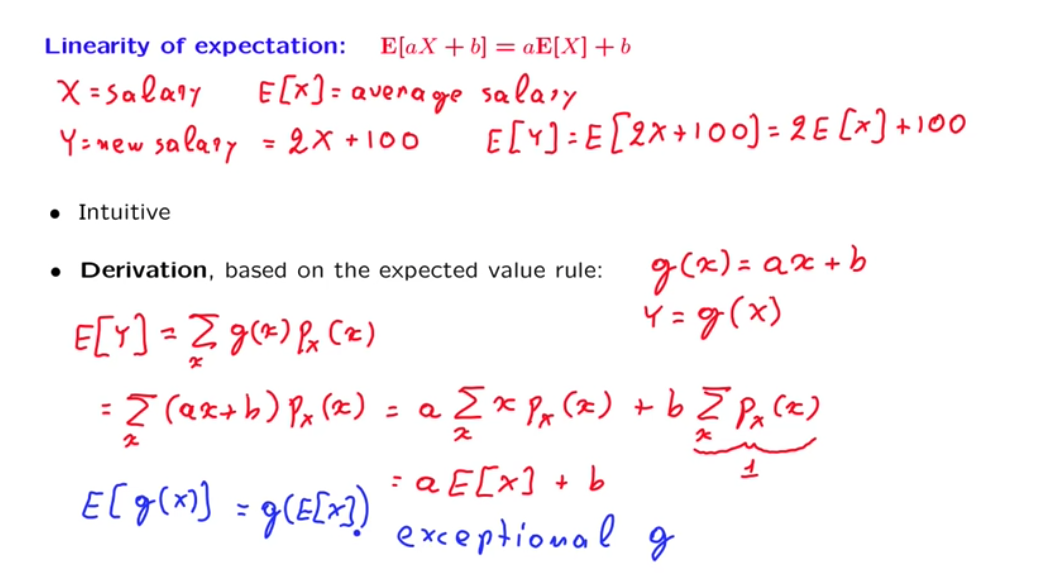 Linearity of expectation: E[aX + b] = aE[X] + b
X = salary E[X] = average salary
Y = new salary = 2X + 100 E[Y] = E[2X + 100] = 2E[X] + 100
• Intuitive
• Derivation, based on the expected value rule:
g(x) = ax + b
Y = g(X)
E[Y] = ∑_x g(x) p_X(x)
= ∑_x (ax + b) p_X(x) = a ∑_x x p_X(x) + b ∑_x p_X(x)
1
= a E[X] + b
E[g(X)] = g(E[X]) exceptional g